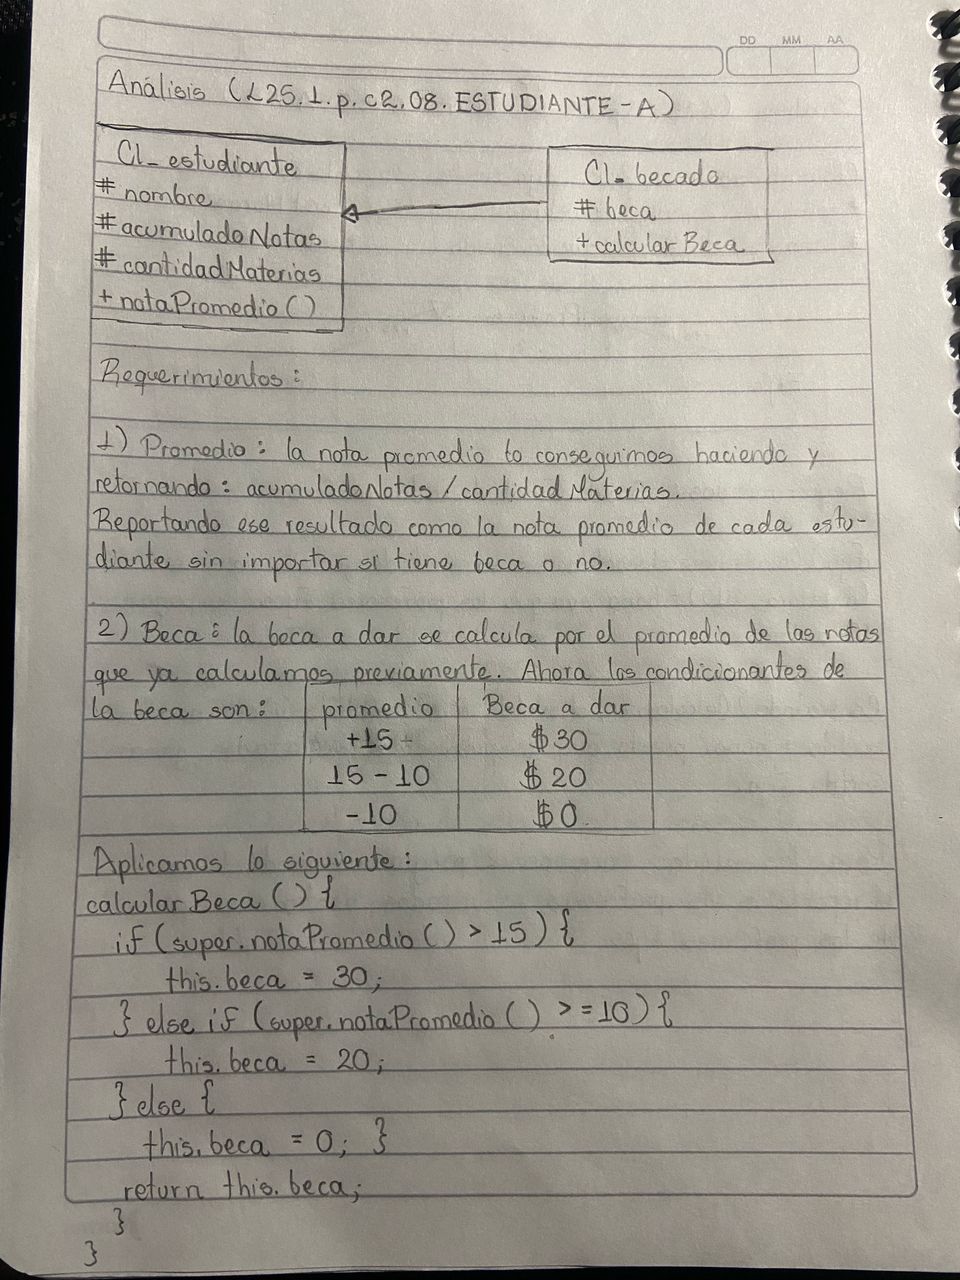 DD MM AA
Análisis (L25.1.p.c2.08.ESTUDIANTE-A)
Cl_estudiante
# nombre
# acumuladoNotas
# cantidadMaterias
+ notaPromedio()
Cl_becado
# beca
+ calcularBeca
Requerimientos:
1) Promedio: la nota promedio lo conseguimos haciendo y
retornando: acumuladoNotas / cantidadMaterias.
Reportando ese resultado como la nota promedio de cada estu-
diante sin importar si tiene beca o no.
2) Beca: la beca a dar se calcula por el promedio de las notas
que ya calculamos previamente. Ahora los condicionantes de
la beca son:
promedio Beca a dar
+15 $30
15 - 10 $20
-10 $0
Aplicamos lo siguiente:
calcularBeca () {
if (super.notaPromedio () > 15) {
this.beca = 30;
} else if (super.notaPromedio () >= 10) {
this.beca = 20;
} else {
this.beca = 0; }
return this.beca;
}
}